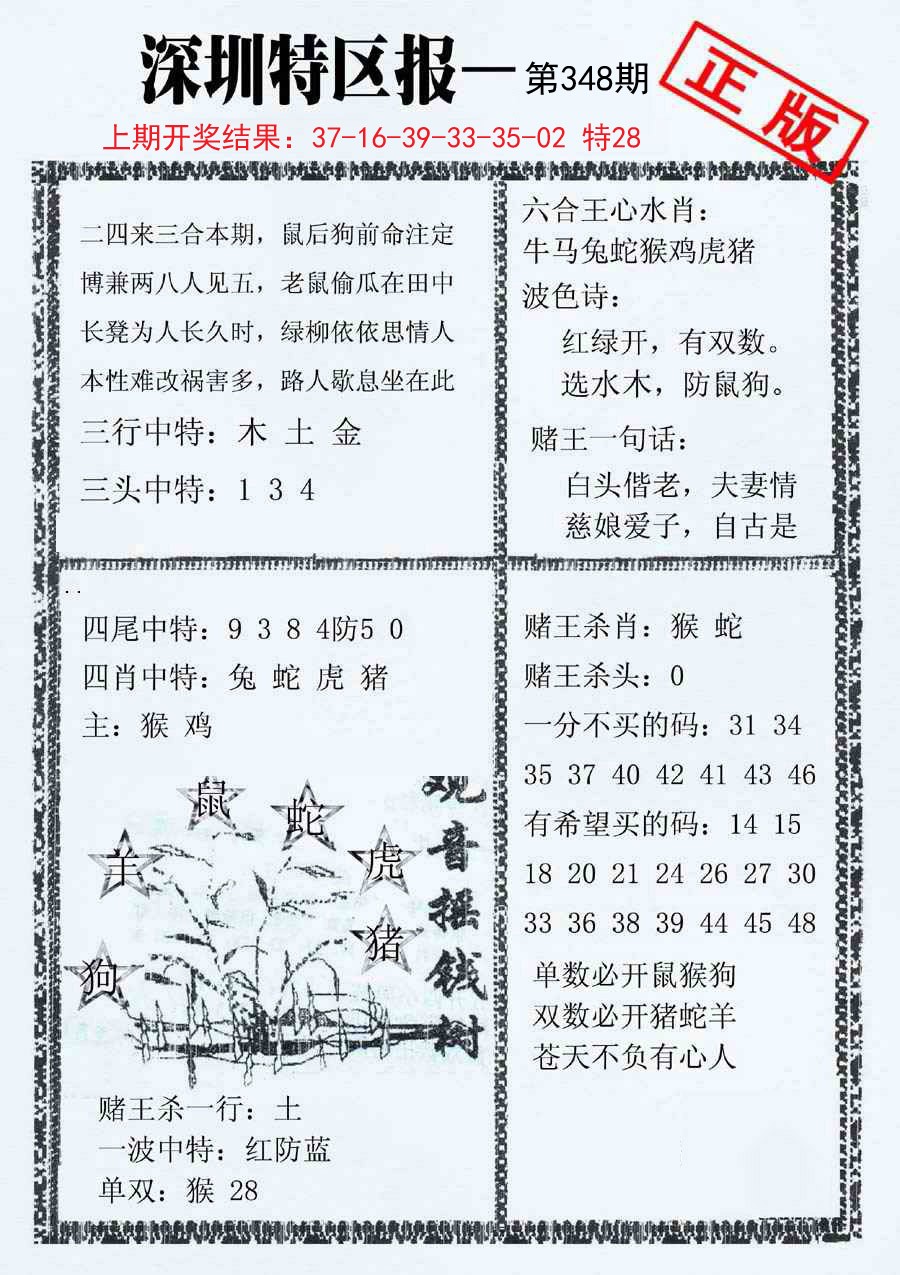 深圳特区报一第348期
正版
上期开奖结果：37-16-39-33-35-02 特28
二四来三合本期，鼠后狗前命注定
博兼两八人见五，老鼠偷瓜在田中
长凳为人长久时，绿柳依依思情人
本性难改祸害多，路人歇息坐在此
三行中特：木 土 金
三头中特：1 3 4
六合王心水肖：
牛马兔蛇猴鸡虎猪
波色诗：
红绿开，有双数。
选水木，防鼠狗。
赌王一句话：
白头偕老，夫妻情
慈娘爱子，自古是
四尾中特：9 3 8 4防5 0
四肖中特：兔 蛇 虎 猪
主：猴 鸡
鼠
蛇
羊
虎
猪
狗
观音摇钱树
赌王杀一行：土
一波中特：红防蓝
单双：猴 28
赌王杀肖：猴 蛇
赌王杀头：0
一分不买的码：31 34
35 37 40 42 41 43 46
有希望买的码：14 15
18 20 21 24 26 27 30
33 36 38 39 44 45 48
单数必开鼠猴狗
双数必开猪蛇羊
苍天不负有心人